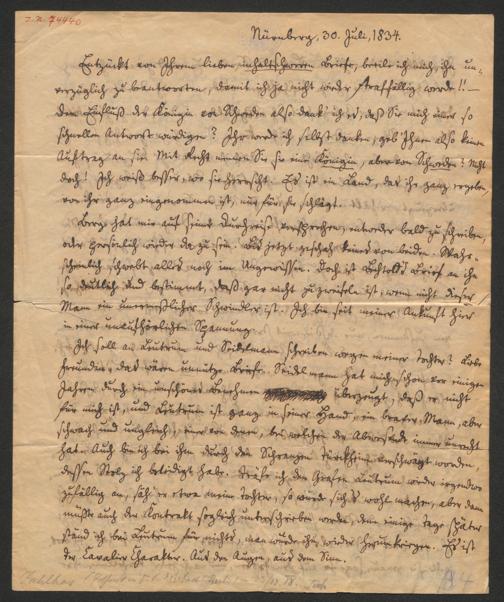 Nürnberg, 30. Juli, 1834.
Entzückt von Ihrem lieben inhaltschweren Briefe, beeile ich mich, ihn un-
verzüglich zu beantworten, damit ich ja nicht wieder straffällig werde!! —
Dem Einfluß der Königin von Schweden also dank' ich es, daß Sie mich einer so
schnellen Antwort würdigen? Ihr werde ich selbst danken, geb Ihnen also keinen
Auftrag an sie. Mit Recht nennen Sie sie eine Königin, aber von Schweden? Nicht
doch! Ich weiß besser, wo sie herrscht. Es ist ein Land, das ihr ganz ergeben,
von ihr ganz eingenommen ist, nur für sie schlägt.
Berg hat mir auf seiner Durchreise versprochen, entweder bald zu schreiben,
oder persönlich wieder da zu sein. Bis jetzt geschah keines von beiden. Wahr-
scheinlich schwebt alles noch im Ungewissen. Doch ist Brief an ihn
so deutlich und bestimmt, daß gar nicht zu zweifeln ist, wenn nicht dieser
Mann ein Schwindler ist. Ich bin seit meiner Ankunft hier
in einer unaufhörlichen Spannung.
Ich soll an Leutrum und Seidelmann schreiben wegen meiner Tochter? Liebe
Freundin, das wären unnütze Briefe. Seidelmann hat mich schon vor einigen
Jahren durch ein unschönes Benehmen überzeugt, daß er nicht
für mich ist, und Leutrum ist ganz in seiner Hand, ein braver Mann, aber
schwach und unglich, einer von denen, bei welchen der Abwesende immer unrecht
hat. Auch bin ich bei ihm durch den Schranzen verschwärzt worden
dessen Stolz ich beleidigt habe. Treffe ich den Grafen Leutrum wieder irgendwo
zufällig an, säh' er etwa meine Tochter, so würde sich's wohl machen, aber dann
müßte auch der Kontrakt sogleich unterschrieben werden, denn einige Tage später
stünd ich bei Leutrum für nichts, man würde ihn wieder herumkriegen. Es ist
der Cavalier Charakter. Aus den Augen, aus dem Sinn.